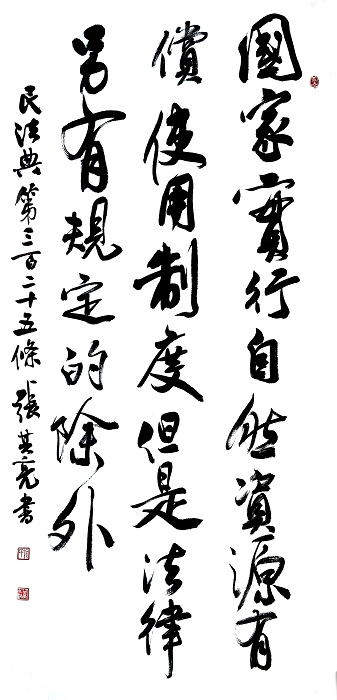 國家實行自然資源有
償使用制度但是法律
另有規定的除外
民法典第三百二十五條 張其亮書